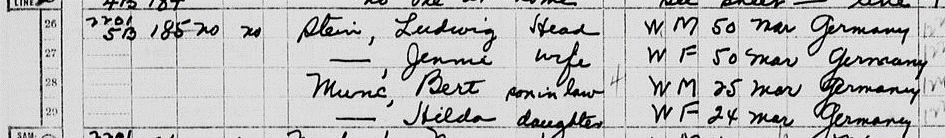 LINE
26 2201 5B 185 no no Stein, Ludwig Head W M 50 Mar Germany
27 —, Jennie wife W F 50 Mar Germany
28 Munc, Bert son in law W M 25 Mar Germany
29 —, Hilda daughter W F 24 Mar Germany
SAM.